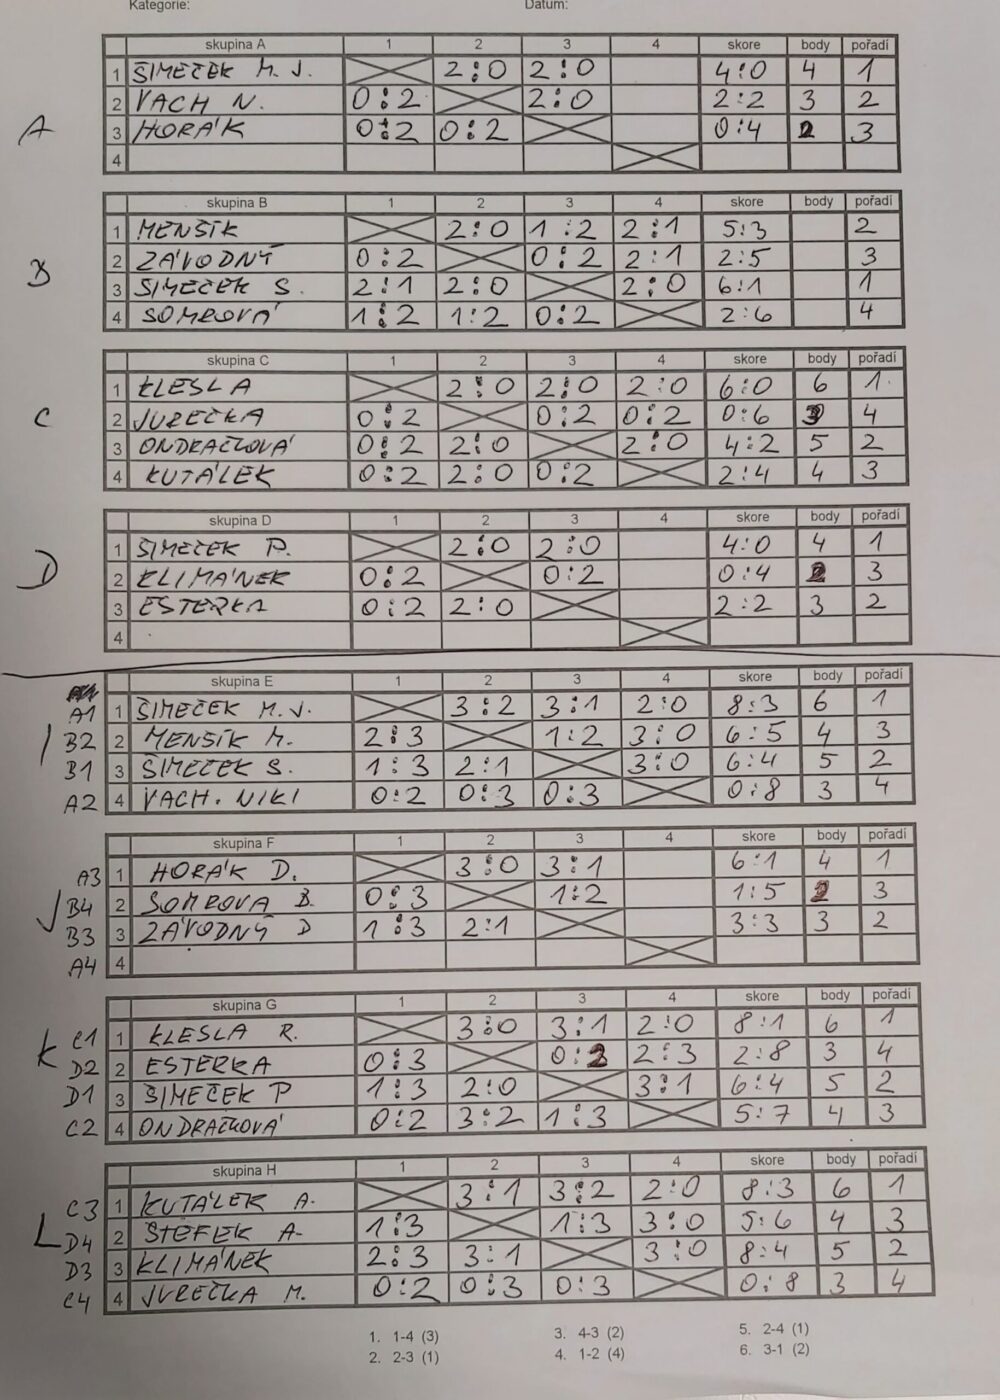 Kategorie: Datum:
skupina A 1 2 3 4 skore body pořadí
1 ŠIMEČEK M. J. 2:0 2:0 4:0 4 1
2 VACH N. 0:2 2:0 2:2 3 2
A 3 HORÁK 0:2 0:2 0:4 2 3
4
skupina B 1 2 3 4 skore body pořadí
1 MENŠÍK 2:0 1:2 2:1 5:3 2
2 ZÁVODNÝ 0:2 0:2 2:1 2:5 3
B 3 ŠIMEČEK S. 2:1 2:0 2:0 6:1 1
4 SOMROVÁ 1:2 1:2 0:2 2:6 4
skupina C 1 2 3 4 skore body pořadí
1 KLESLA 2:0 2:0 2:0 6:0 6 1.
C 2 JUREČKA 0:2 0:2 0:2 0:6 3 4
3 ONDRAČKOVÁ 0:2 2:0 2:0 4:2 5 2
4 KUTÁLEK 0:2 2:0 0:2 2:4 4 3
skupina D 1 2 3 4 skore body pořadí
1 ŠIMEČEK P. 2:0 2:0 4:0 4 1
D 2 KLIMÁNEK 0:2 0:2 0:4 2 3
3 ESTERKA 0:2 2:0 2:2 3 2
4
skupina E 1 2 3 4 skore body pořadí
A1 1 ŠIMEČEK M.J. 3:2 3:1 2:0 8:3 6 1
I B2 2 MENŠÍK M. 2:3 1:2 3:0 6:5 4 3
B1 3 ŠIMEČEK S. 1:3 2:1 3:0 6:4 5 2
A2 4 VACH. NIKI 0:2 0:3 0:3 0:8 3 4
skupina F 1 2 3 4 skore body pořadí
A3 1 HORÁK D. 3:0 3:1 6:1 4 1
J B4 2 SOMROVA B. 0:3 1:2 1:5 2 3
B3 3 ZÁVODNÝ D 1:3 2:1 3:3 3 2
A4 4
skupina G 1 2 3 4 skore body pořadí
C1 1 KLESLA R. 3:0 3:1 2:0 8:1 6 1
K D2 2 ESTERKA 0:3 0:2 2:3 2:8 3 4
D1 3 ŠIMEČEK P 1:3 2:0 3:1 6:4 5 2
C2 4 ONDRAČKOVÁ 0:2 3:2 1:3 5:7 4 3
skupina H 1 2 3 4 skore body pořadí
C3 1 KUTÁLEK A. 3:1 3:2 2:0 8:3 6 1
L D4 2 ŠTEFEK A. 1:3 1:3 3:0 5:6 4 3
D3 3 KLIMÁNEK 2:3 3:1 3:0 8:4 5 2
C4 4 JUREČKA M. 0:2 0:3 0:3 0:8 3 4
1. 1-4 (3) 3. 4-3 (2) 5. 2-4 (1)
2. 2-3 (1) 4. 1-2 (4) 6. 3-1 (2)